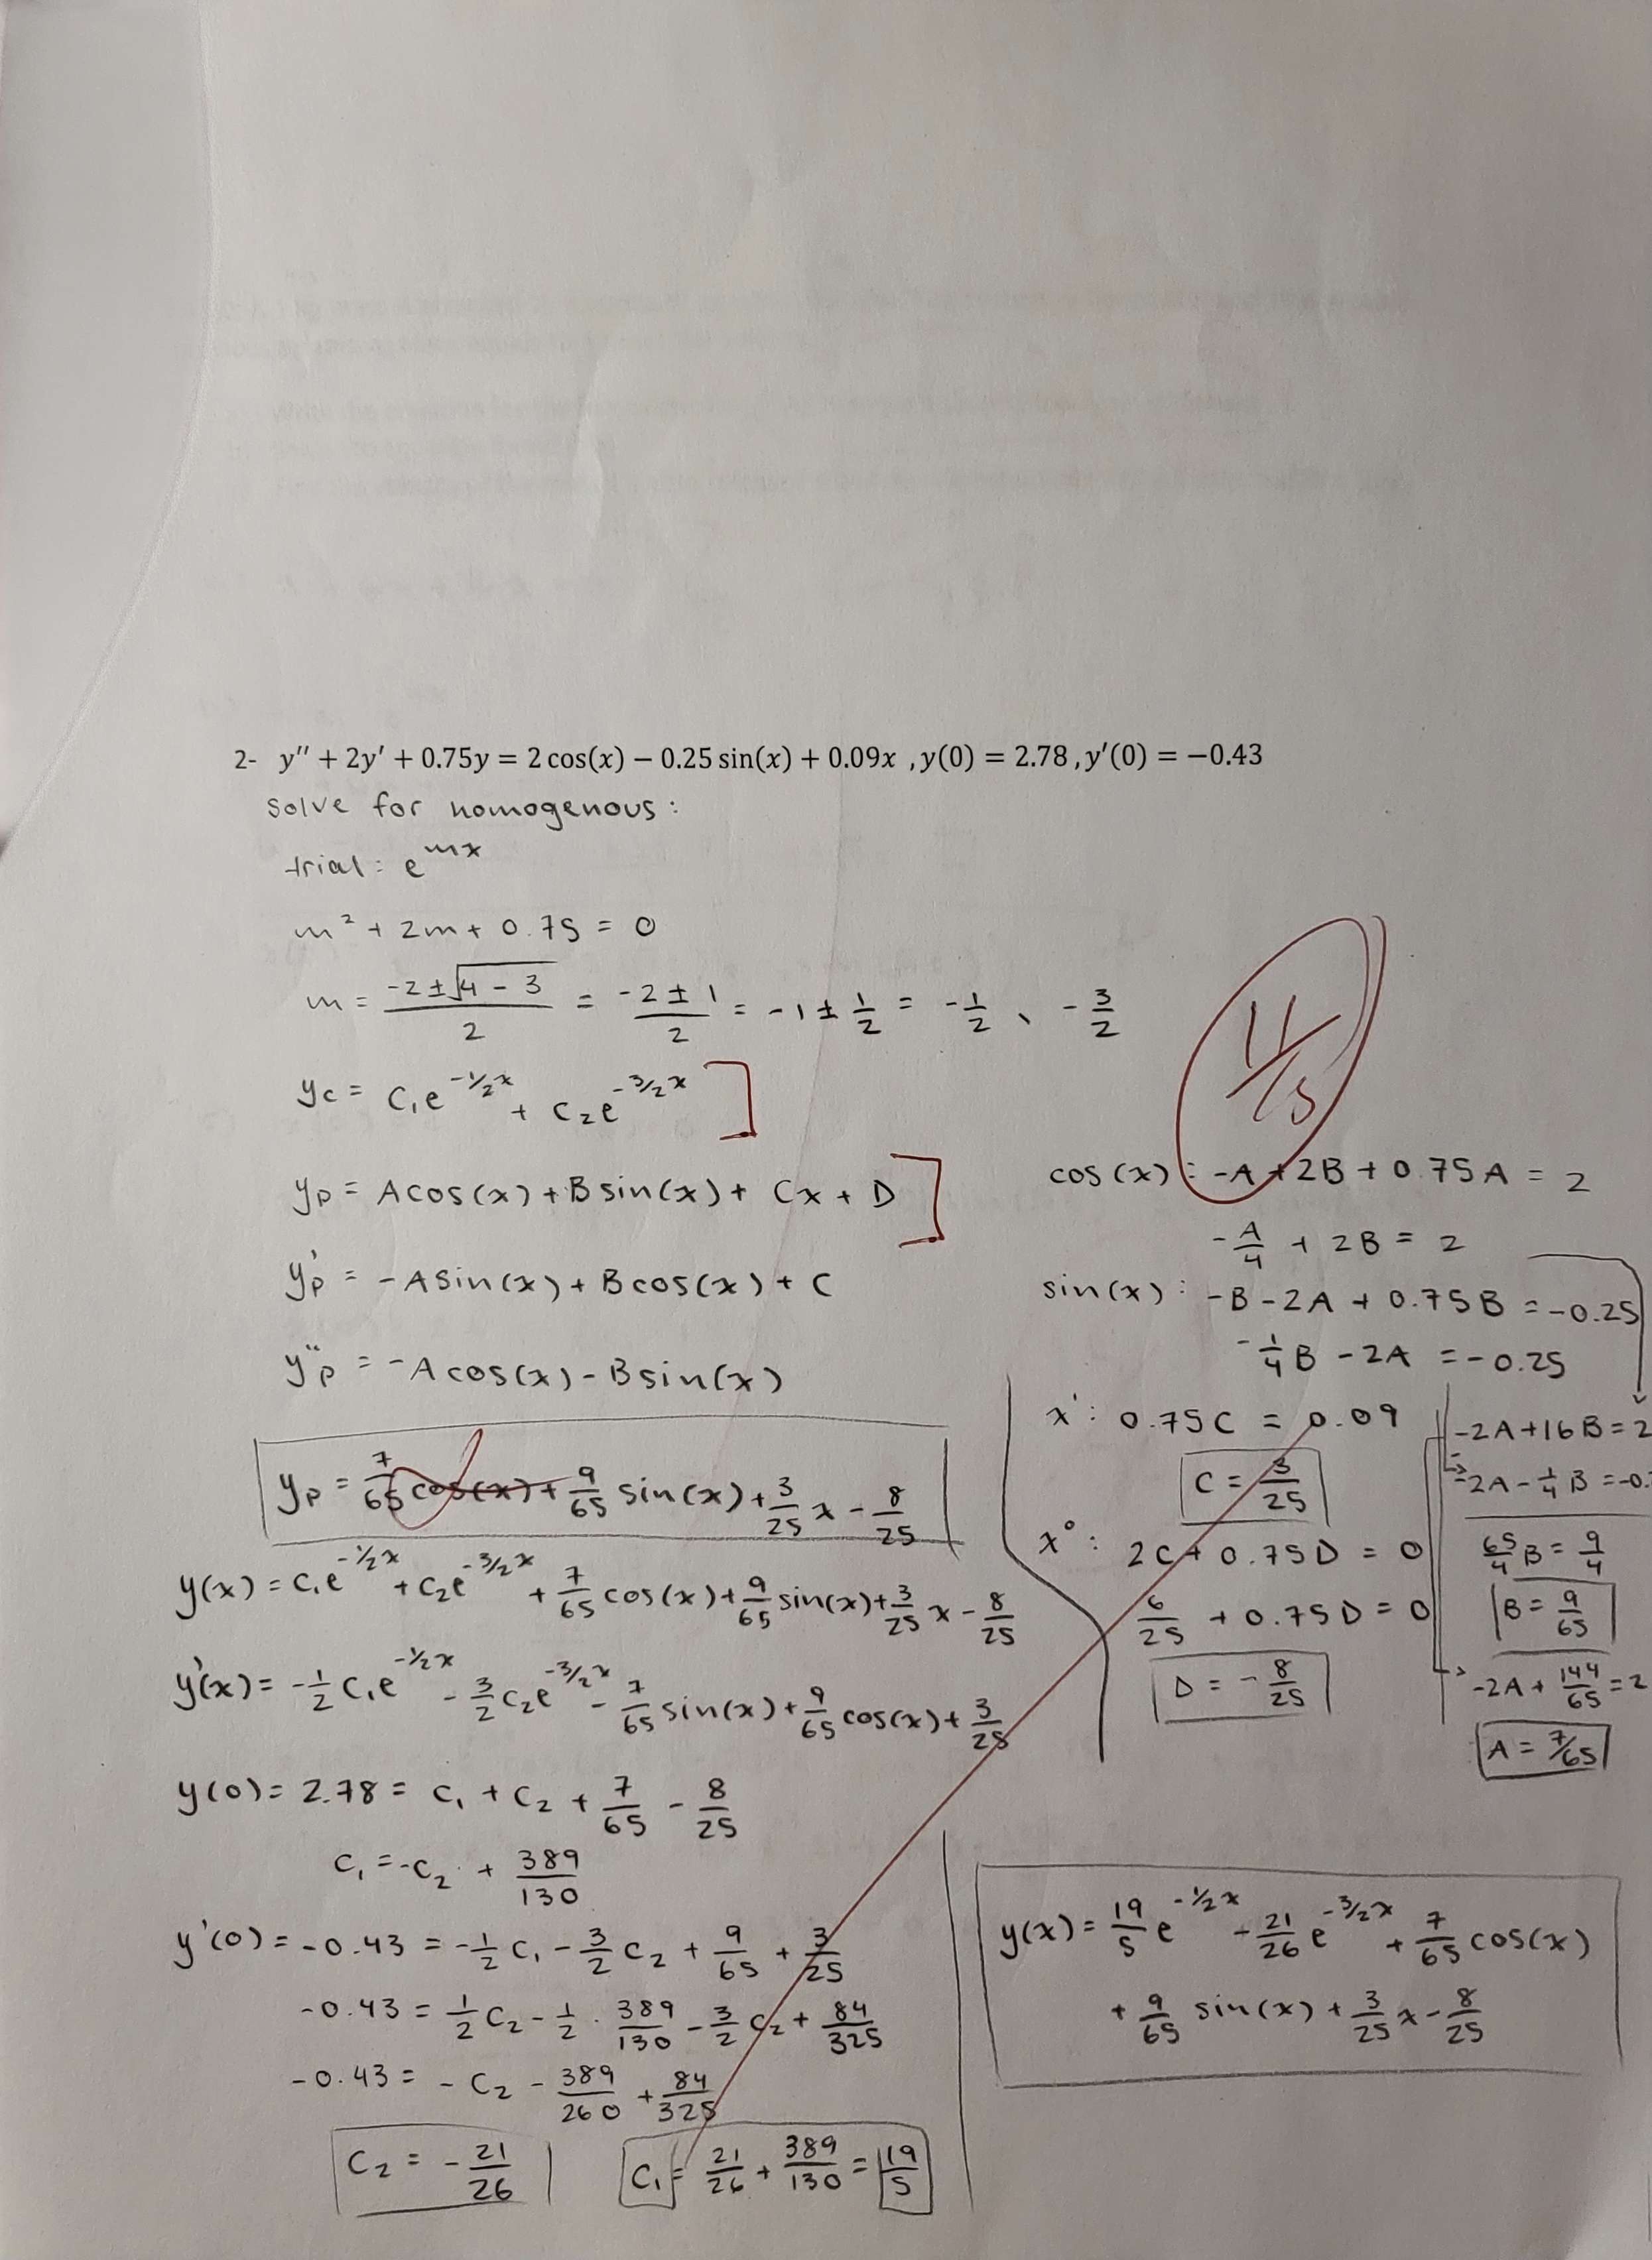 2- y'' + 2y' + 0.75y = 2 cos(x) − 0.25 sin(x) + 0.09x , y(0) = 2.78 , y'(0) = −0.43
solve for homogenous :
trial : e^mx
m² + 2m + 0.75 = 0
m = (-2 ± √(4 - 3))/2 = (-2 ± 1)/2 = -1 ± 1/2 = -1/2 , -3/2
yc = c₁e^(-1/2 x) + c₂e^(-3/2 x)
yp = Acos(x) + Bsin(x) + Cx + D
yp' = -Asin(x) + Bcos(x) + C
yp'' = -Acos(x) - Bsin(x)
yp = 7/65 cos(x) + 9/65 sin(x) + 3/25 x - 8/25
y(x) = c₁e^(-1/2 x) + c₂e^(-3/2 x) + 7/65 cos(x) + 9/65 sin(x) + 3/25 x - 8/25
y'(x) = -1/2 c₁e^(-1/2 x) - 3/2 c₂e^(-3/2 x) - 7/65 sin(x) + 9/65 cos(x) + 3/25
y(0) = 2.78 = c₁ + c₂ + 7/65 - 8/25
c₁ = -c₂ + 389/130
y'(0) = -0.43 = -1/2 c₁ - 3/2 c₂ + 9/65 + 3/25
-0.43 = 1/2 c₂ - 1/2 · 389/130 - 3/2 c₂ + 84/325
-0.43 = - c₂ - 389/260 + 84/325
c₂ = -21/26
c₁ = 21/26 + 389/130 = 19/5
cos(x) : -A + 2B + 0.75A = 2
-A/4 + 2B = 2
sin(x) : -B - 2A + 0.75B = -0.25
-1/4 B - 2A = -0.25
x' : 0.75C = 0.09
C = 3/25
x° : 2C + 0.75D = 0
6/25 + 0.75D = 0
D = -8/25
-2A + 16B = 2
-2A - 1/4 B = -0.
65/4 B = 9/4
B = 9/65
-2A + 144/65 = 2
A = 7/65
y(x) = 19/5 e^(-1/2 x) - 21/26 e^(-3/2 x) + 7/65 cos(x)
+ 9/65 sin(x) + 3/25 x - 8/25